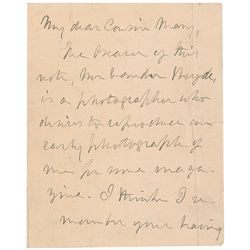 My dear Cousin Mary,
The bearer of this
note Mr Vander Weyde,
is a photographer who
desires to reproduce an
early photograph of
me for some maga-
zine. I think I re-
member your having